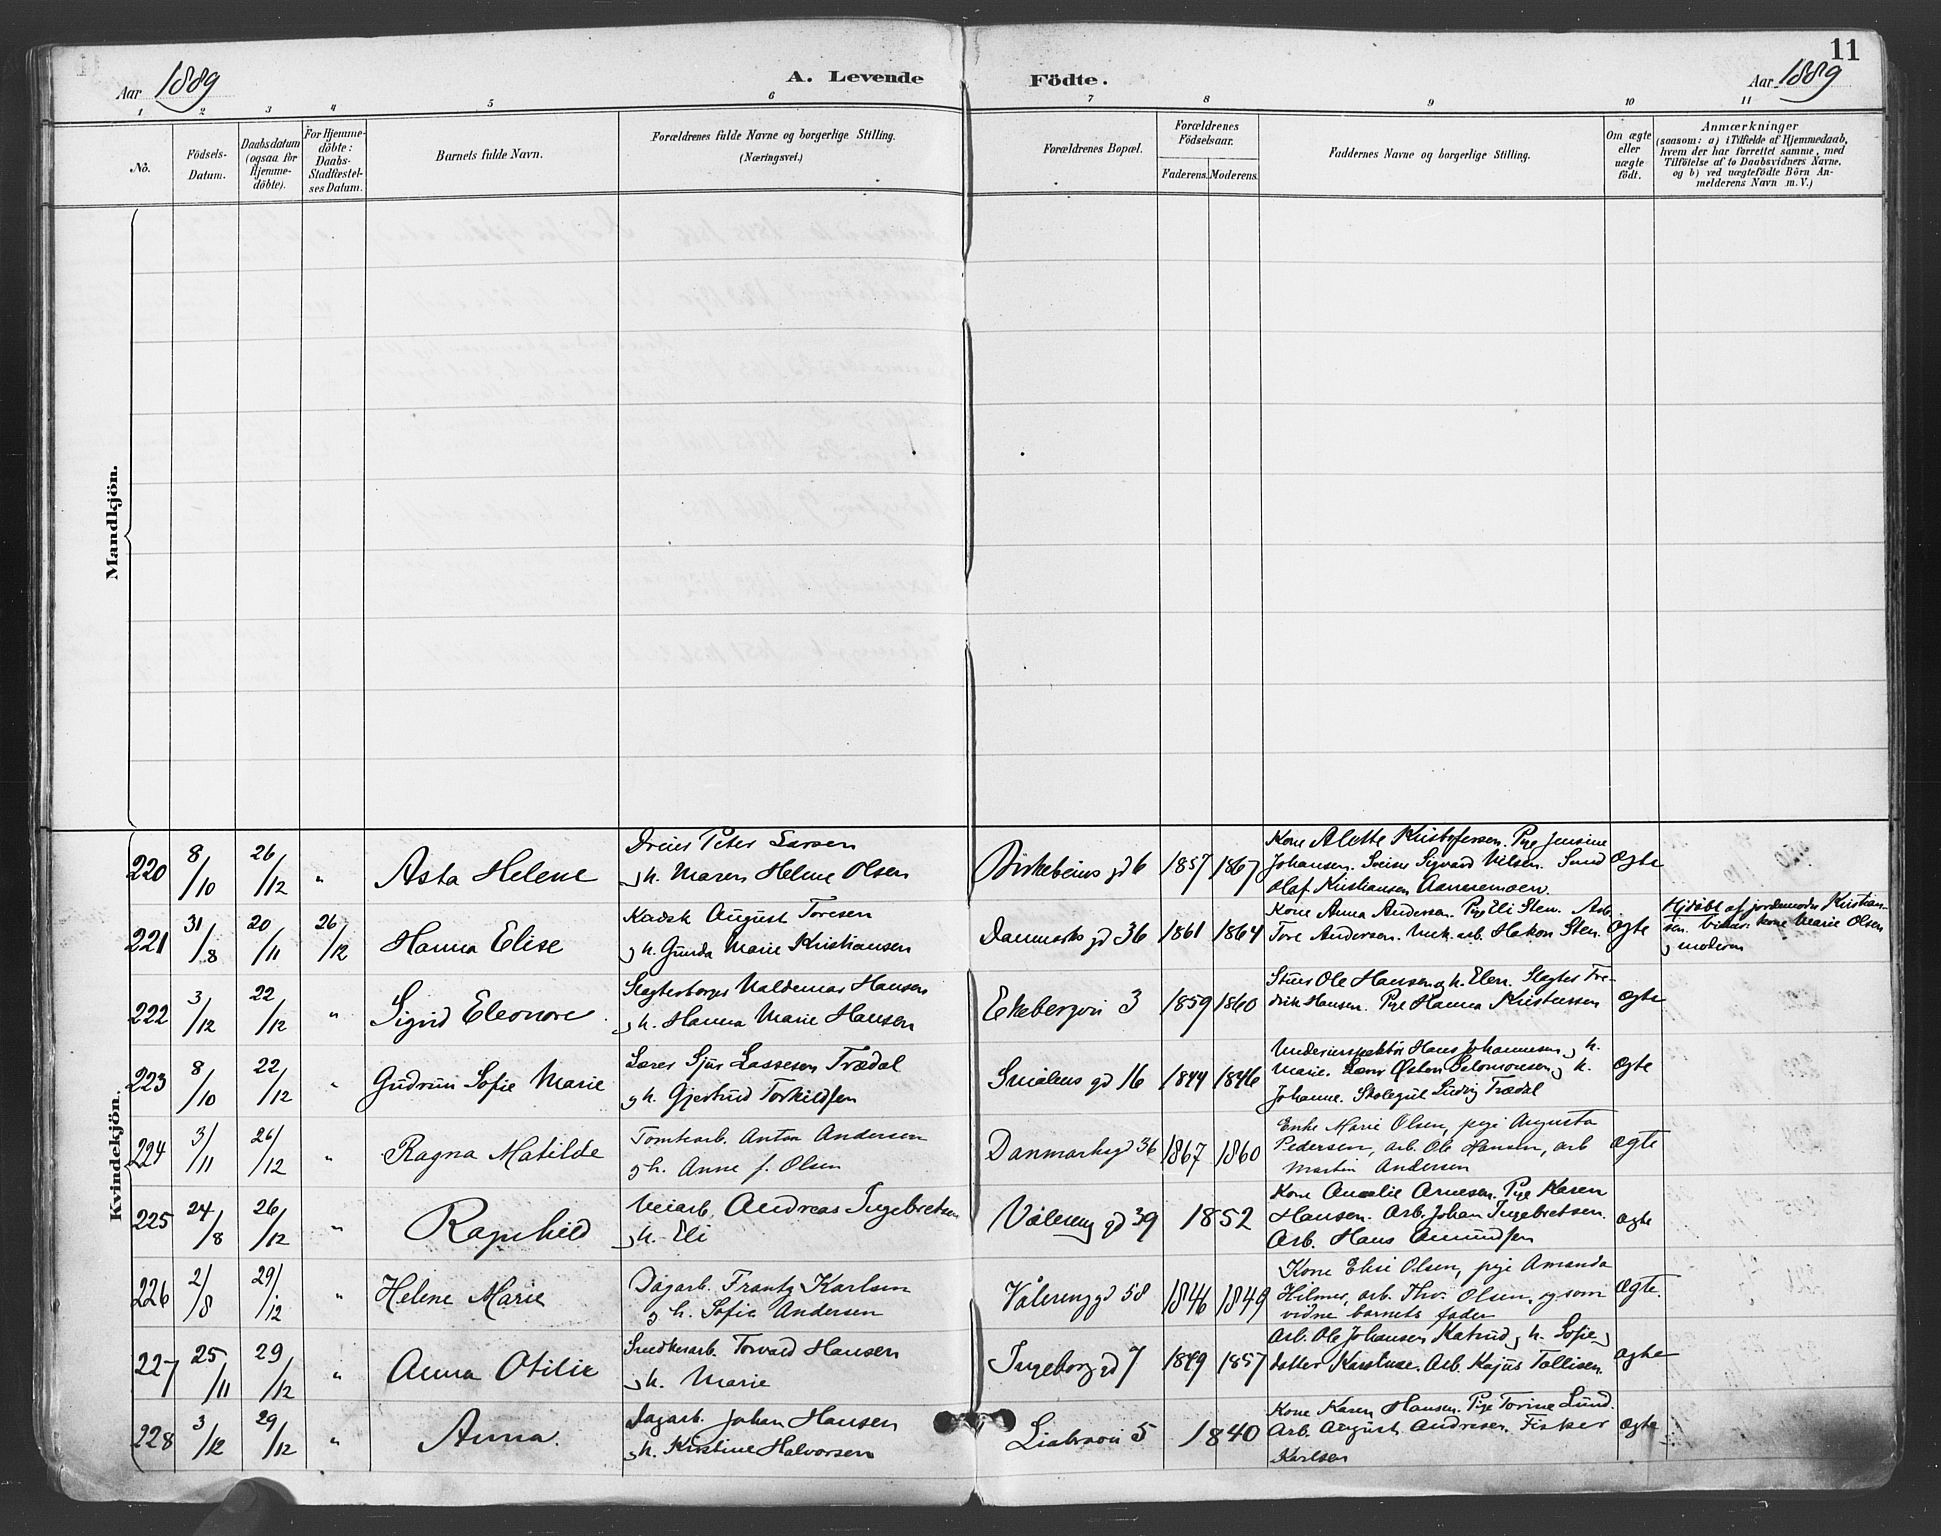 11
Aar 1889
A. Levende Födte.
Aar 1889
1 2 3 4 5 6 7 8 9 10 11
No.
Födsels-
Datum.
Daabsdatum
(ogsaa for
Hjemme-
döbte).
For Hjemme-
döbte:
Daabs-
Stadfæstel-
ses Datum.
Barnets fulde Navn.
Forældrenes fulde Navne og borgerlige Stilling.
(Næringsvei.)
Forældrenes Bopæl.
Forældrenes
Födselsaar.
Faderens. Moderens.
Faddernes Navne og borgerlige Stilling.
Om ægte
eller
uægte
födt.
Anmærkninger
(saasom: a) i Tilfælde af Hjemmedaab,
hvem der har forrettet samme, med
Tilföielse af to Daabsvidners Navne,
og b) ved uægtefödte Börn An-
melderens Navn m. V.)
Mandkjön.
Kvindekjön.
220 8/10 26/12 " Asta Helene
Peter Larsen
og h. Maren Helene Olsen
Birkebeins gd 6 1857 1867
Kone Alette Kristofersen. Pige Jensine
Johansen. Sigvard Nilsen.
Olaf Kristiansen
ægte
221 31/8 20/11 26/12 Hanna Elise
Kudsk August Toresen
og h. Gunda Marie Kristiansen
Danmarks gd 36 1861 1864
Kone Anna Andersen. Pige Eli Sten. Arb.
Tore Andersen. Mek. arb. Hakon Sten.
ægte
Hjdöbt af jordmoder Kristian-
sen. kone Marie Olsen
og moderen
222 3/12 22/12 " Sigrid Eleonore
Valdemar Hansen
og h. Hanna Marie Hansen
Ekebergvei 3 1859 1860
Ole Hansen og h. Elen. Slagter Fre-
drik Hansen. Pige Hanna
ægte
223 8/10 22/12 " Gudrun Sofie Marie
Lærer Sjur Lassesen Trædal
og h. Gjertrud Torkildsen
Smålens gd 16 1844 1846
Underinspektör Hans Johannesen og h.
Marie. Salomonsen og h.
Johanne. Ludvig Trædal
ægte
224 3/11 26/12 " Ragna Matilde
Tomtearb. Anton Andersen
og h. Anne f. Olsen
Danmarksgd 36 1867 1860
Enke Marie Olsen, pige Augusta
Pedersen, arb. Ole Hansen, arb
Martin Andersen
ægte
225 24/8 26/12 " Ragnhild
Veiarb. Andreas Ingebretsen
og h. Eli
Vålereng gd 39 1852
Kone Amalie Arnesen. Pige Karen
Hansen. Arb. Johan Ingebretsen.
Arb. Hans Amundsen
ægte
226 2/8 29/12 " Helene Marie
Dagarb. Frantz Karlsen
og h. Sofie Andersen
Vålerenggd 58 1846 1849
Kone Elise Olsen, pige Amanda
Hilmer, arb. Thv. Olsen, og som
vidne barnets fader
ægte.
227 25/11 29/12 " Anna Otilie
Snedkerarb. Torvald Hansen
og h. Marie
Ingeborg gd 7 1849 1857
Arb. Ole Johansen og h. Sofie og
datter Arb. Kajus Tollisen.
ægte
228 3/12 29/12 " Anna.
Dagarb. Johan Hansen
og h. Kirstine Halvorsen
Liabrovei 5 1840
Kone Karen Hansen. Pige Torine Lund.
Arb. August Andresen. Fisker
Karlsen
ægte